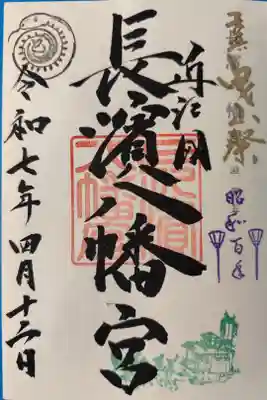 曳山祭
昭和百年
近江国
長濱八幡宮
長濱八幡宮
令和七年四月十二日